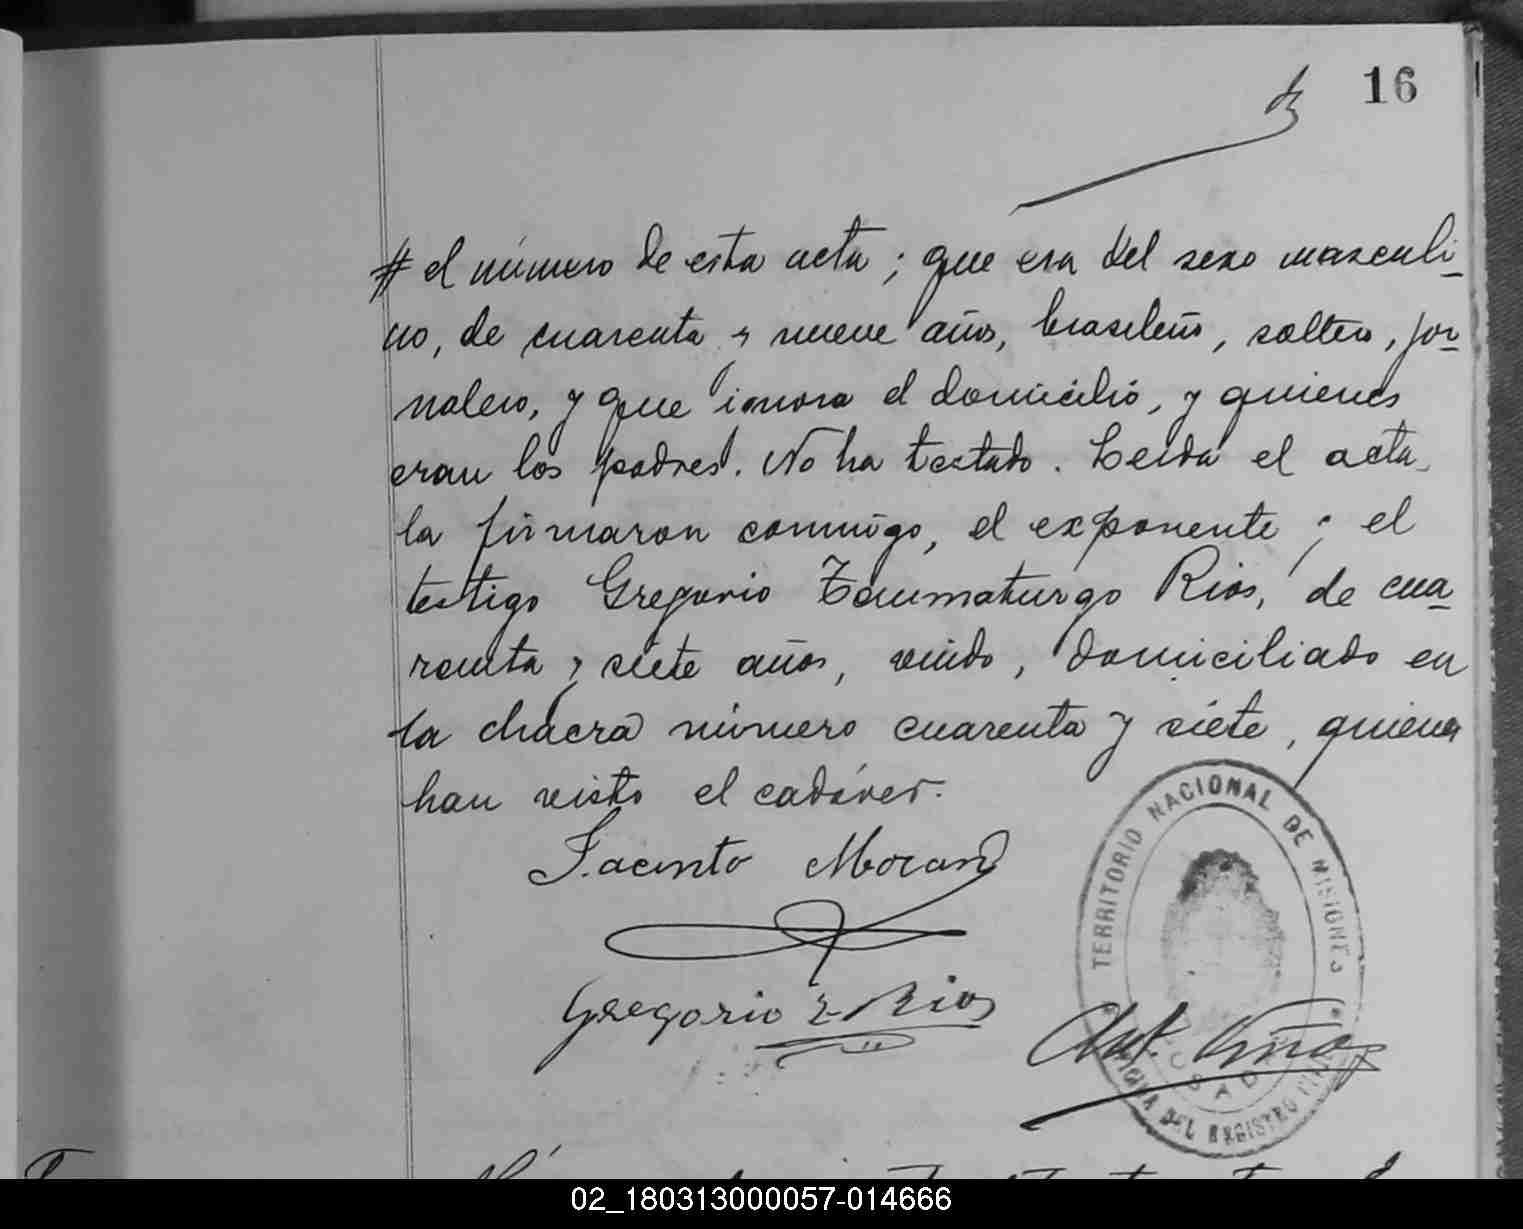 16
# el número de esta acta; que era del sexo masculi-
no, de cuarenta y nueve años, brasileño, soltero, jor-
nalero, y que ignora el domicilio, y quienes
eran los padres. No ha testado. Leida el acta,
la firmaron conmigo, el exponente y el
testigo Gregorio Taumaturgo Rios, de cua-
renta y siete años, viudo, domiciliado en
la chacra número cuarenta y siete, quienes
han visto el cadáver.
Jacinto Moran
Gregorio T. Rios
TERRITORIO NACIONAL DE MISIONES
DEL REGISTRO
02_180313000057-014666